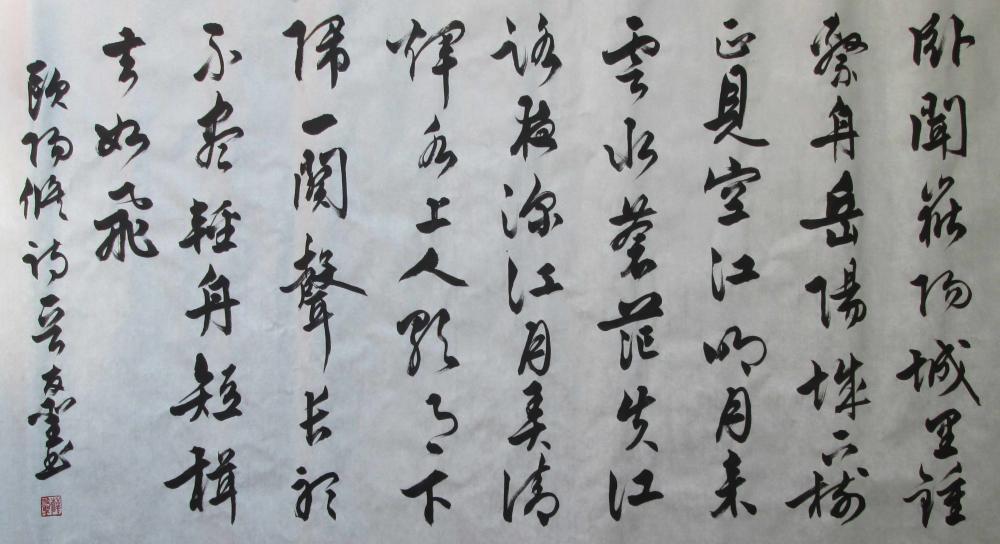 卧聞嶽阳城里鍾
繫舟岳陽城下樹
正見空江明月来
雲水蒼茫失江
路夜深江月弄清
輝水上人歌月下
歸一闋聲长聽
不盡輕舟短楫
去如飛
歐阳修诗